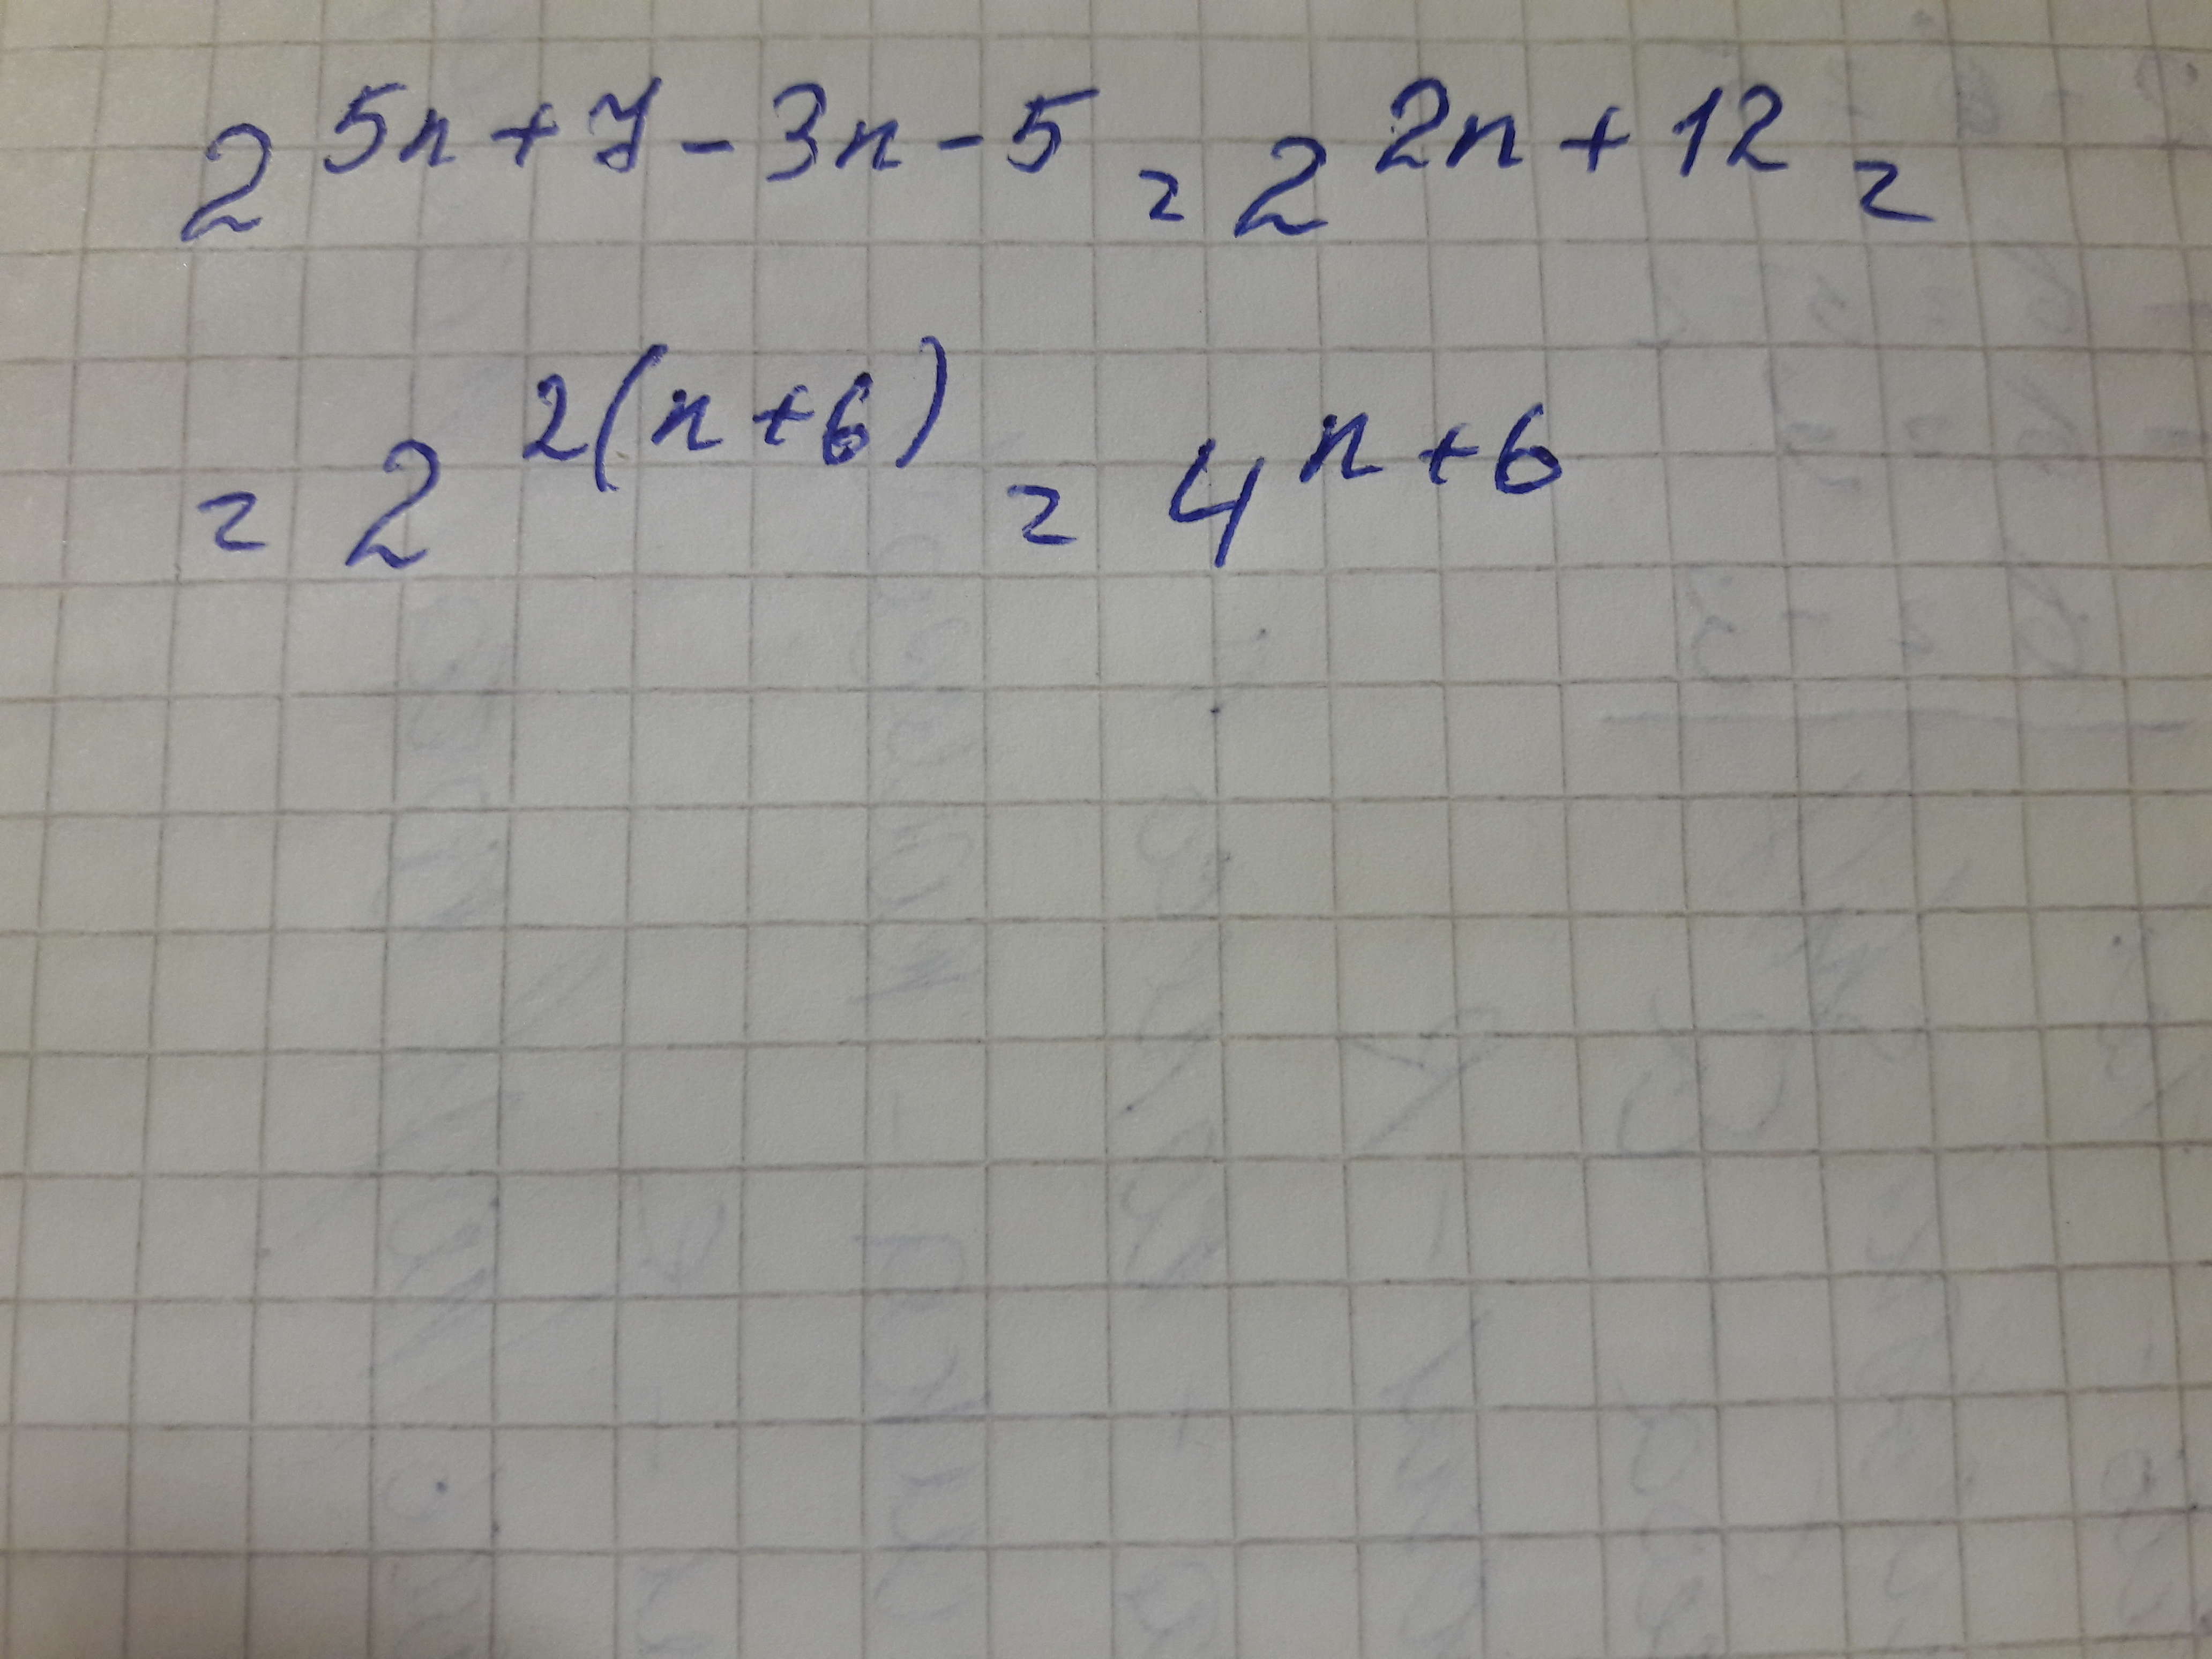 2^{5n+7-3n-5} = 2^{2n+12} =
= 2^{2(n+6)} = 4^{n+6}